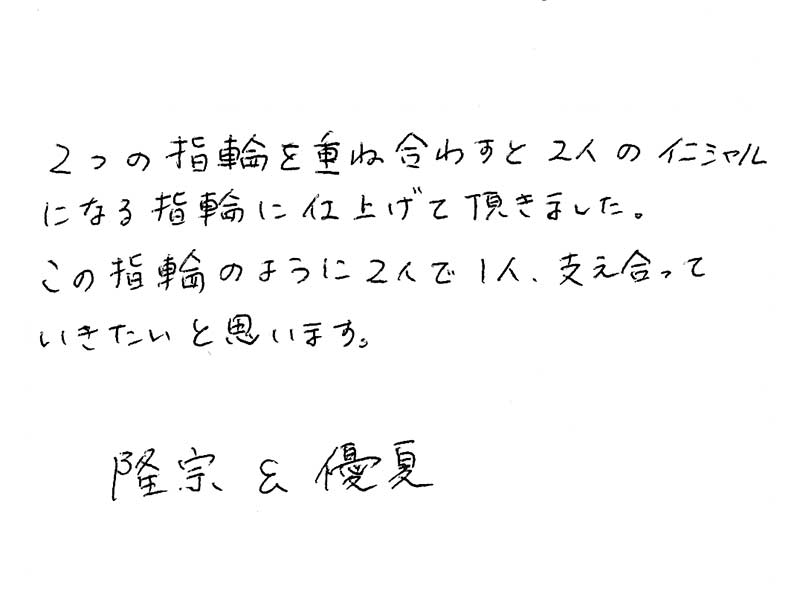 2つの指輪を重ね合わすと2人のイニシャル
になる指輪に仕上げて頂きました。
この指輪のように2人で1人、支え合って
いきたいと思います。
隆宗 & 優夏